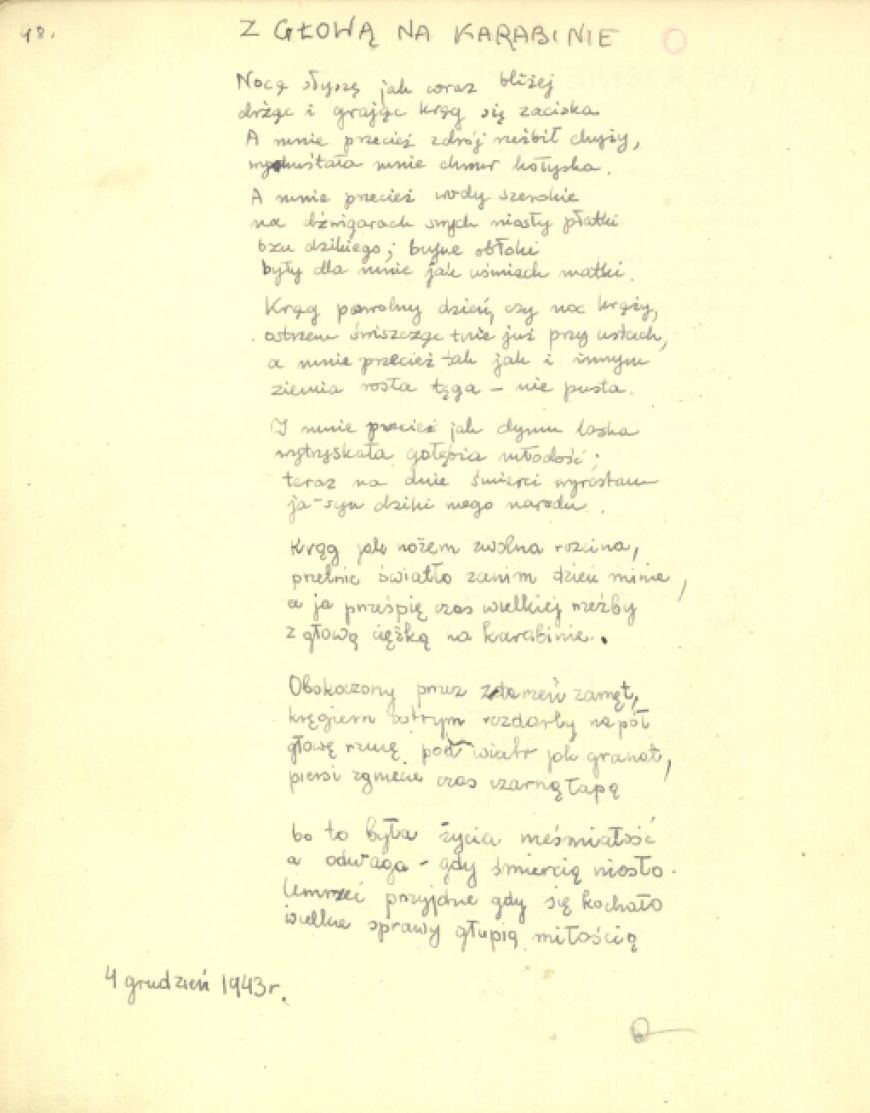 48.
Z GŁOWĄ NA KARABINIE
Nocą słyszę jak coraz bliżej
drżąc i grając krąg się zaciska
A mnie przecież zdrój rzeźbił chyży,
wyhuśtała mnie chmur kołyska.
A mnie przecież wody szerokie
na dźwigarach swych niosły płatki
bzu dzikiego; bujne obłoki
były dla mnie jak uśmiech matki.
Krąg powolny dzień czy noc krąży,
ostrzem świszcząc tnie już przy ustach,
a mnie przecież tak jak i innym
ziemia rosła tęga – nie pusta.
I mnie przecież jak dymu laska
wytryskała gołębia młodość;
teraz na dnie śmierci wyrastam
ja – syn dziki mego narodu.
Krąg jak nożem zwolna rozcina,
przetnie światło zanim dzień minie,
a ja prześpię czas wielkiej rzeźby
z głową ciężką na karabinie.
Obskoczony przez zdarzeń zamęt,
kręgiem ostrym rozdarty na pół
głowę rzucę pod wiatr jak granat,
piersi zgniecie czas czarną łapą
bo to była życia nieśmiałość
a odwaga – gdy śmiercią niosło.
Umrzeć przyjdzie gdy się kochało
wielkie sprawy głupią miłością
4 grudzień 1943 r.